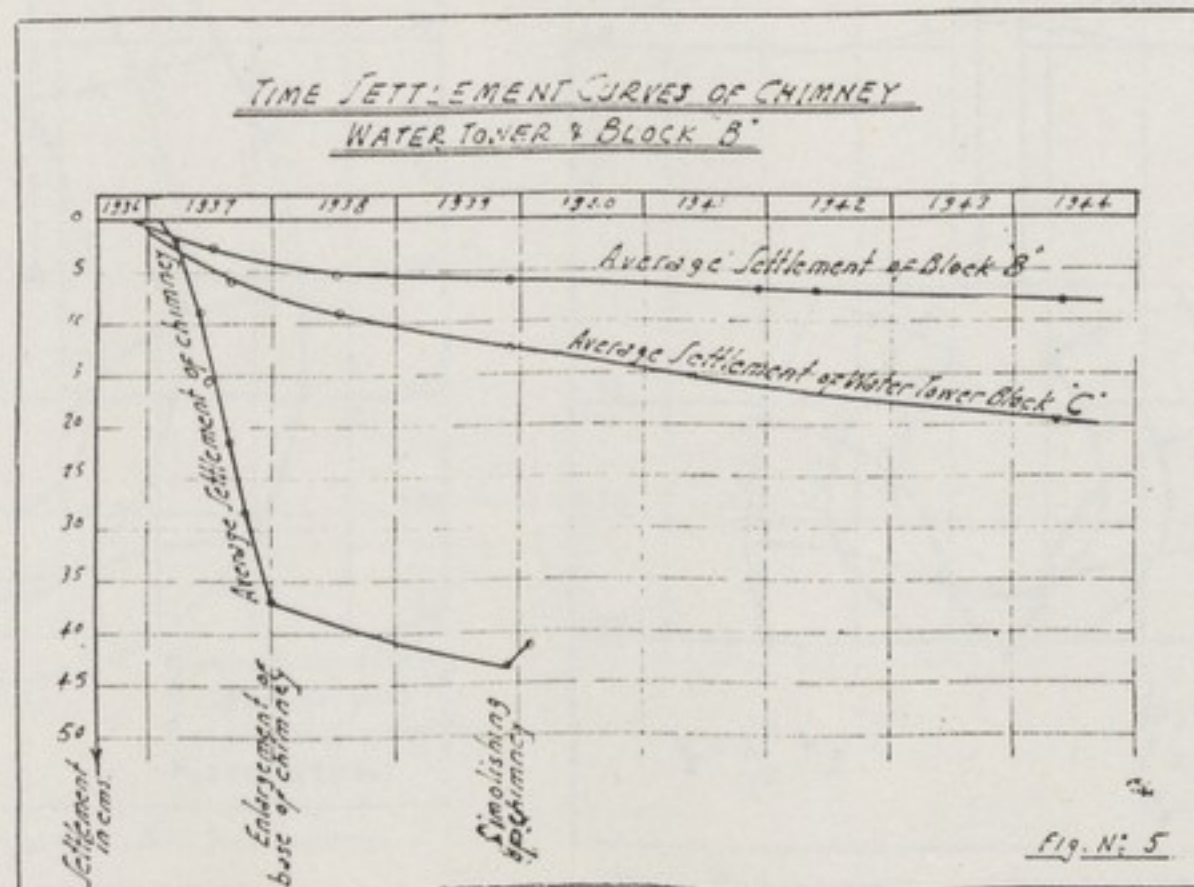 TIME SETTLEMENT CURVES OF CHIMNEY
WATER TOWER & BLOCK "B"
1936 1937 1938 1939 1940 1941 1942 1943 1944
0
5
10
15
20
25
30
35
40
45
50
Average Settlement of Block "B"
Average Settlement of Water Tower Block "C"
Average Settlement of chimney
Settlement
in cms.
Enlargement of
base of chimney
Dimolishing
of chimney
Fig. Nº 5